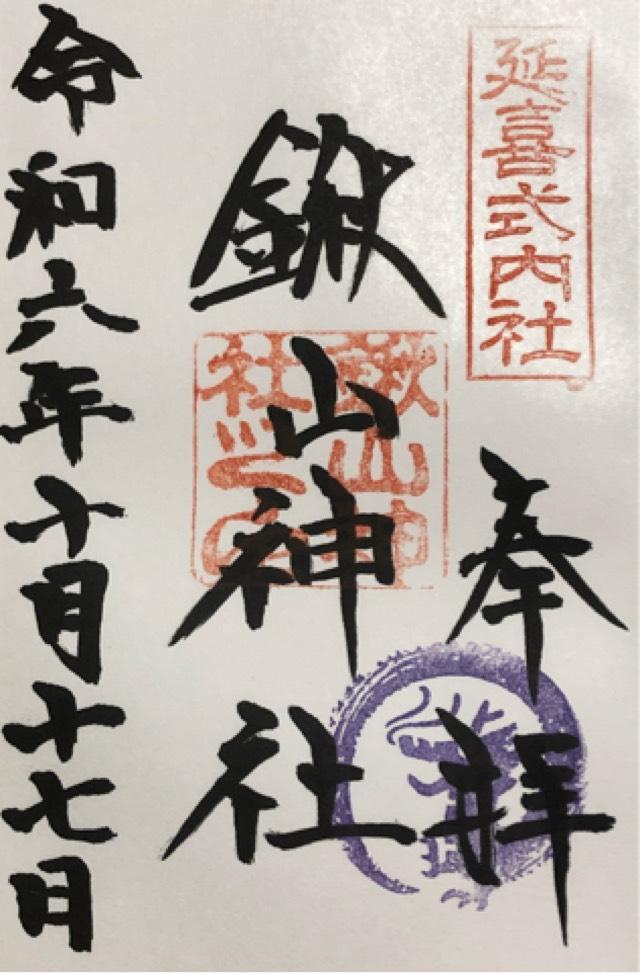 延喜式内社
奉拝
鍬山神社
鍬山神
社之印
令和六年十月十七日